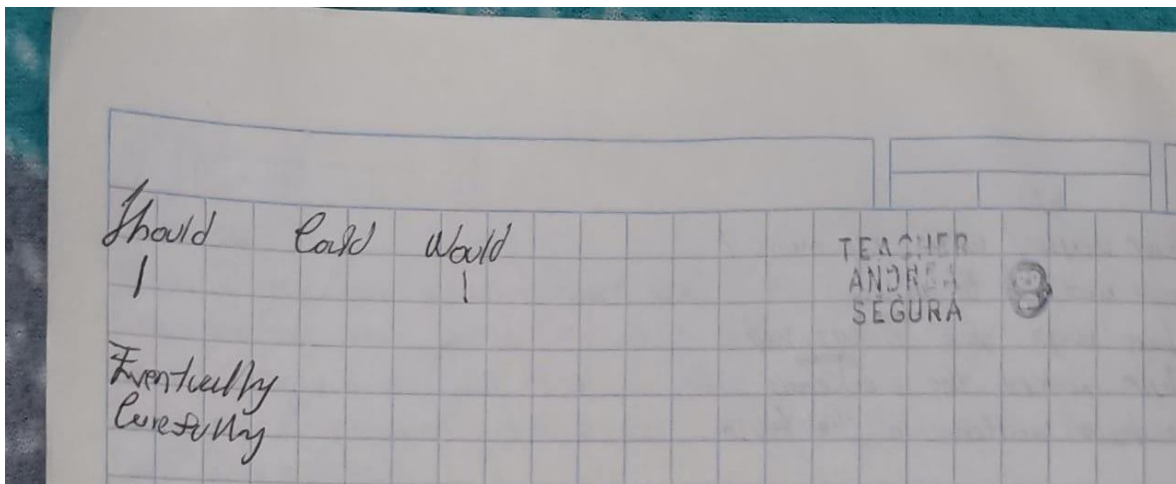 Should Could Would
TEACHER
ANDREA
SEGURA
Eventually
Carefully